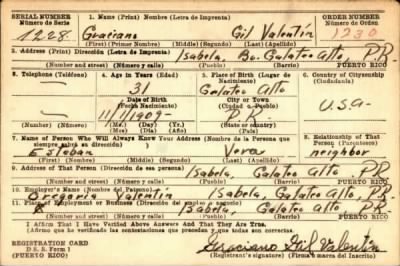 SERIAL NUMBER 1. Name (Print) (Nombre) (Letra de Imprenta) ORDER NUMBER
Número de Serie Número de Orden
1228 Graciano Gil Valentín 1230
(First) (Primer Nombre) (Middle) (Segundo) (Last) (Apellido)
2. Address (Print) (Dirección) (Letra de Imprenta) Isabela, Bo. Galateo Alto P.R.
(Number) (Número) (Street) (Calle) (Town) (Pueblo) (Barrio) PUERTO RICO
3. Telephone (Teléfono) 4. Age in Years (Edad) 5. Place of Birth (Lugar de Nacimiento) 6. Country of Citizenship (Ciudadanía)
31 Galateo Alto
Date of Birth (Fecha Nacimiento) City or Town (Ciudad o Pueblo) U.S.A.
11/1/1909 P.R.
(Mo.) (Mes) (Day) (Día) (Yr.) (Año)
7. Name of Person Who Will Always Know Your Address (Nombre de la Persona que siempre sabrá su dirección) 8. Relationship of That Person (Parentesco)
Esteban Vera neighbor
(First) (Nombre) (Middle) (Segundo) (Last) (Apellido)
9. Address of That Person (Dirección de esa persona) Isabela, Galateo Alto, P.R.
(Number) (Número) (Street) (Calle) (Town) (Pueblo) (Barrio) PUERTO RICO
10. Employer's Name (Nombre del Patrono)
Gregoria Valentin Isabela, Galateo Alto, P.R.
11. Place of Employment or Business (Dirección del empleo o negocio)
Isabela, Galateo Alto P.R.
(Number) (Número) (Street) (Calle) (Town) (Pueblo) (Barrio) PUERTO RICO
I Affirm That I Have Verified Above Answers And That They Are True.
(Afirmo que he verificado las contestaciones que preceden y que todas son correctas.
REGISTRATION CARD
D. S. S. Form 1
PUERTO RICO
Graciano Gil Valentin
(Registrant's signature) (Firma o marca del Inscrito)